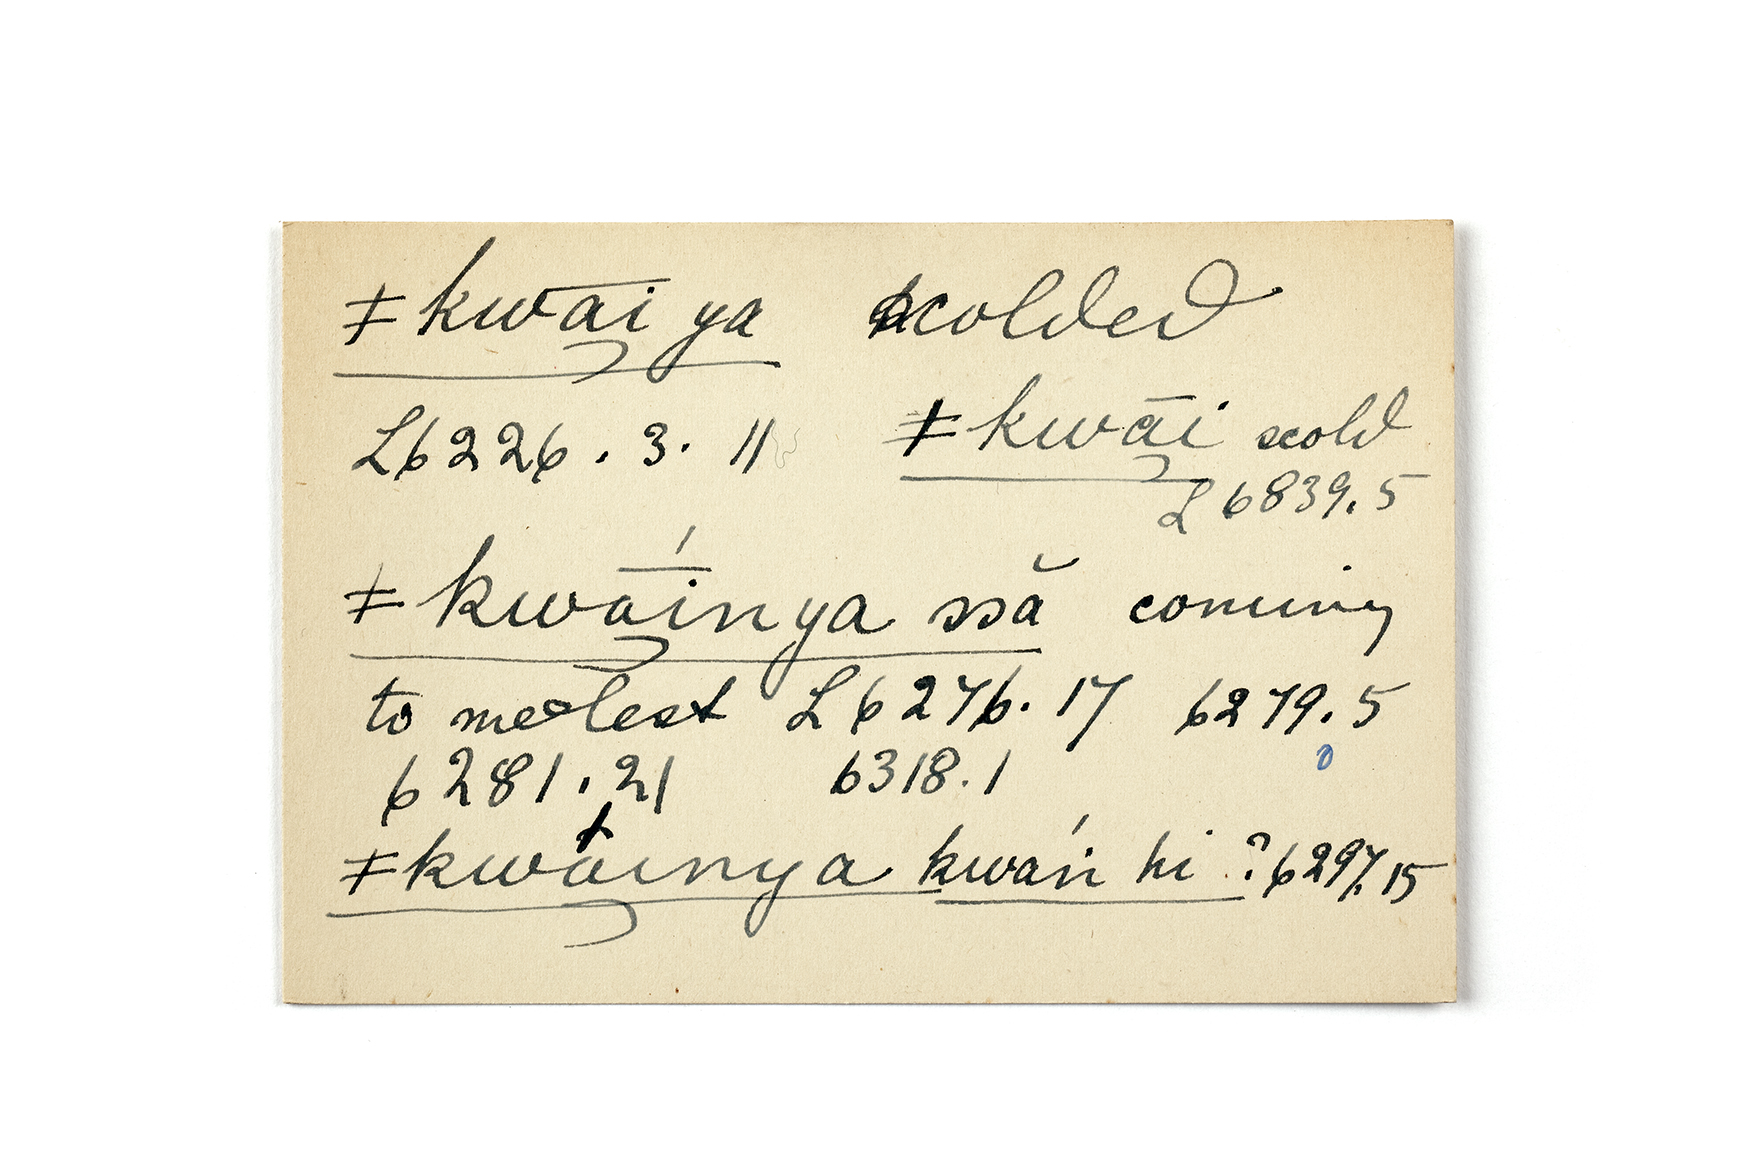 ǂkwa͞i ya scolded
L6226.3.11 ǂkwāi scold
L6839.5
ǂkwā́inya ssă coming
to molest L6276.17 6279.5
6281.21 6318.1
ǂkwáinya kwań hi ? 6297.15